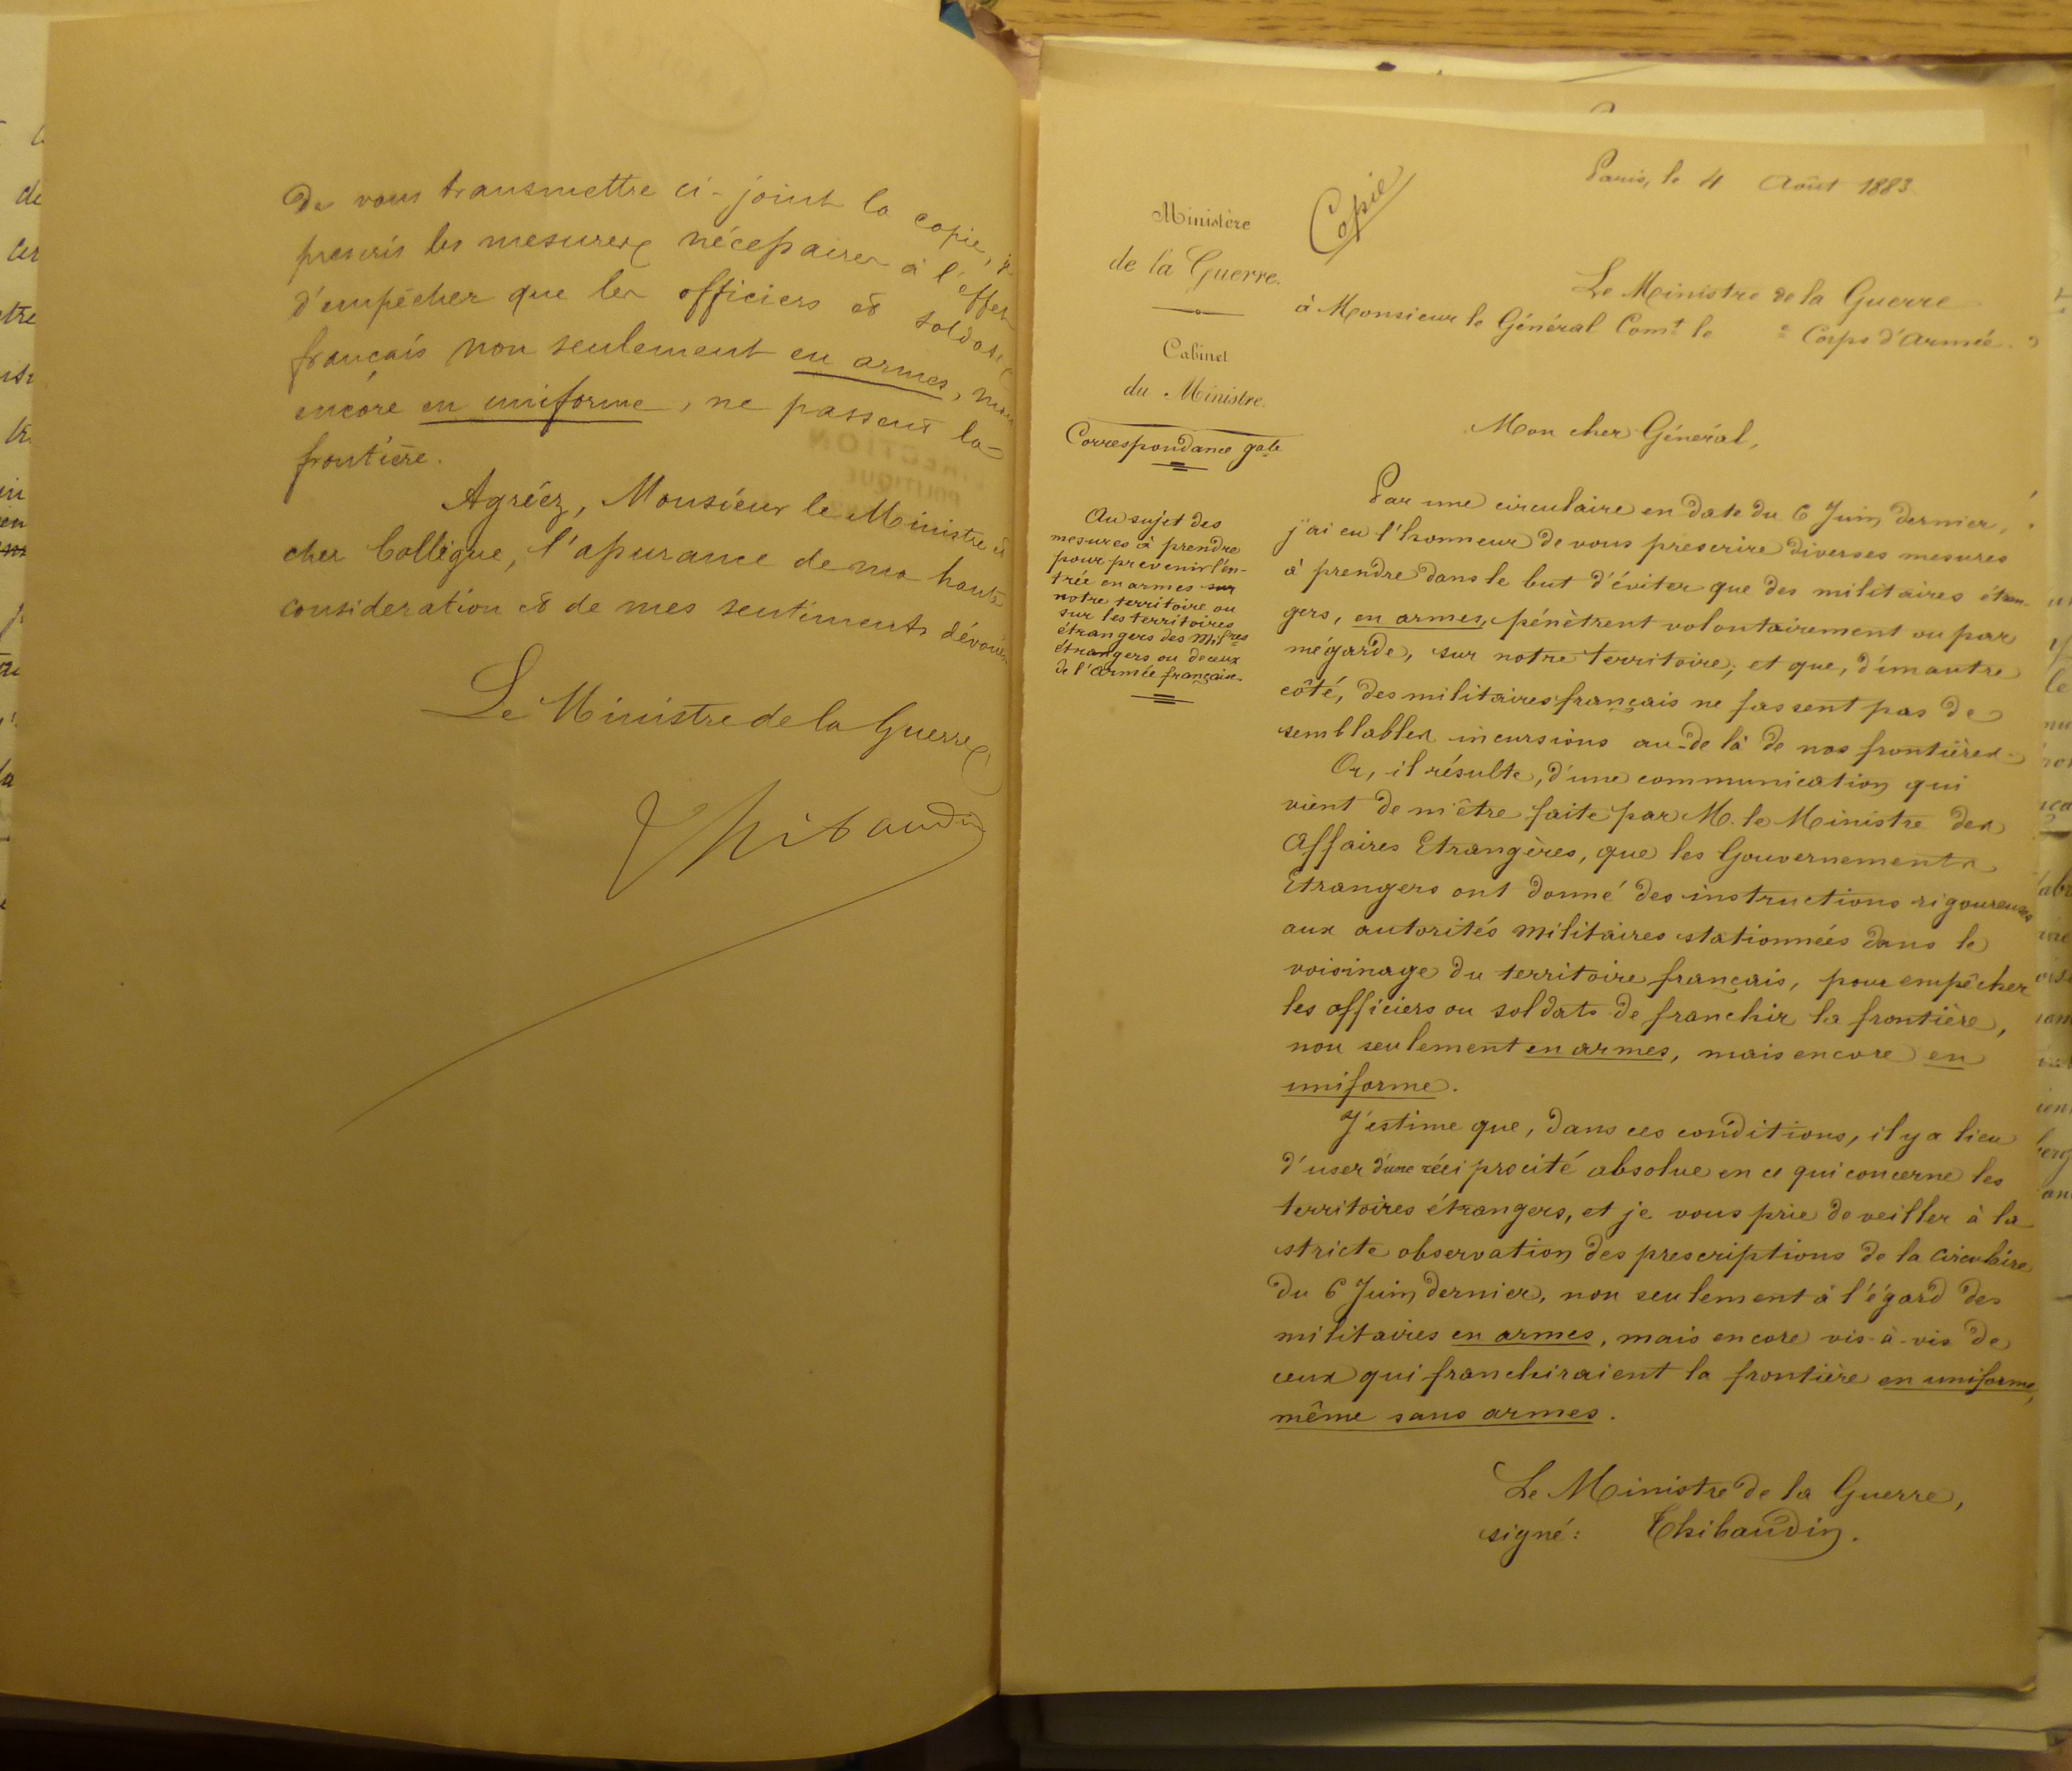 de vous transmettre ci-joint la copie, je
prescris les mesures nécessaires à l'effet
d'empêcher que les officiers et soldats
français non seulement en armes, mais
encore en uniforme, ne passent la
frontière.
Agréez, Monsieur le Ministre et
cher Collègue, l'assurance de ma haute
considération et de mes sentiments dévoués
Le Ministre de la Guerre
Thibaudin
DIRECTION
POLITIQUE
Paris, le 4 Août 1883.
Copie
Ministère
de la Guerre.
Cabinet
du Ministre.
Correspondance gale
Au sujet des
mesures à prendre
pour prévenir l'en-
trée en armes sur
notre territoire ou
sur les territoires
étrangers des Mifres
étrangers ou de ceux
de l'Armée française.
Le Ministre de la Guerre
à Monsieur le Général Comt le e Corps d'Armée.
Mon cher Général,
Par une circulaire en date du 6 Juin dernier,
j'ai eu l'honneur de vous prescrire diverses mesures
à prendre dans le but d'éviter que des militaires étran-
gers, en armes, pénètrent volontairement ou par
mégarde, sur notre territoire; et que, d'un autre
côté, des militaires français ne fassent pas de
semblables incursions au-delà de nos frontières.
Or, il résulte, d'une communication qui
vient de m'être faite par M. le Ministre des
Affaires Etrangères, que les Gouvernements
Etrangers ont donné des instructions rigoureuses
aux autorités militaires stationnées dans le
voisinage du territoire français, pour empêcher
les officiers ou soldats de franchir la frontière,
non seulement en armes, mais encore en
uniforme.
J'estime que, dans ces conditions, il y a lieu
d'user d'une réciprocité absolue en ce qui concerne les
territoires étrangers, et je vous prie de veiller à la
stricte observation des prescriptions de la Circulaire
du 6 Juin dernier, non seulement à l'égard des
militaires en armes, mais encore vis-à-vis de
ceux qui franchiraient la frontière en uniforme,
même sans armes.
Le Ministre de la Guerre,
signé: Thibaudin.